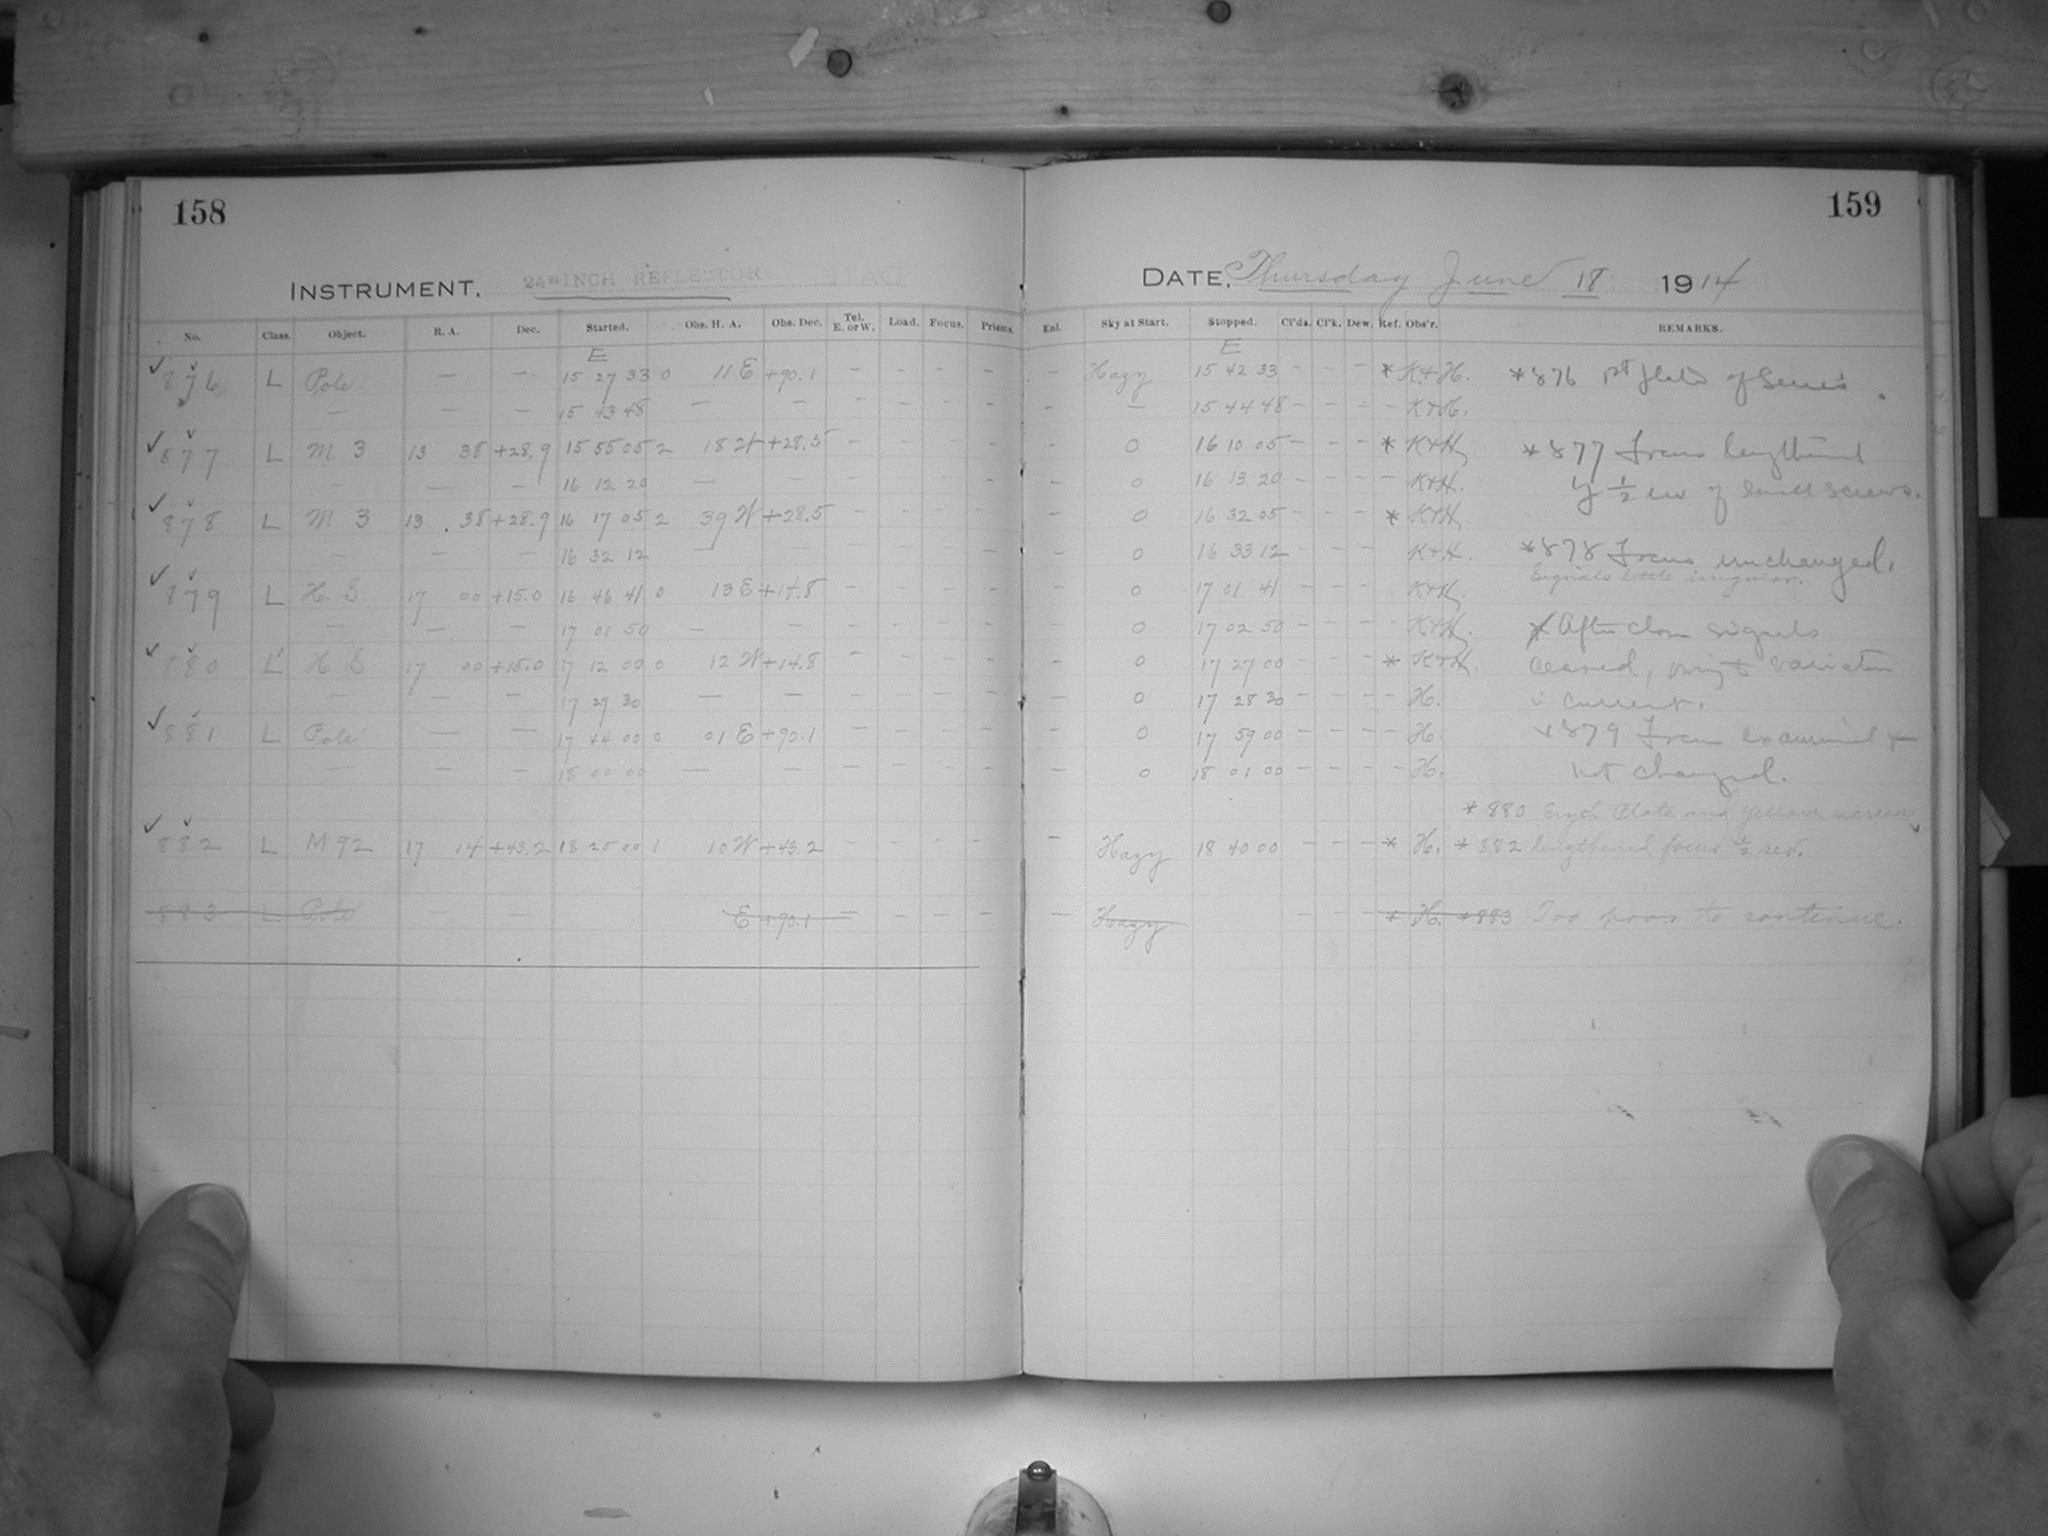 158
159
INSTRUMENT, 24 INCH REFLECTOR
DATE, Thursday June 18 1914
No. Class. Object. R. A. Dec. Started. Obs. H. A. Obs. Dec. Tel. E. or W. Load. Focus. Prisms. Enl. Sky at Start. Stopped. Cl'ds. Cl'k. Dew. Ref. Obs'r. REMARKS.
E E
876 L Pole — — 15 27 33 0 11 E +90.1 — — — — — Hazy 15 42 33 — — — * K+H. *876 of Series.
— — — 15 43 48 — — — — — — — — 15 44 48 — — — — K+H.
877 L M 3 13 38 +28.9 15 55 05 2 18 W +28.5 — — — — 0 16 10 05 — — — * K+H. *877 Focus lengthened
— — 16 12 20 — — — — — — — 0 16 13 20 — — — — K+H. by 1/2 rev of small screws.
878 L M 3 13 38 +28.9 16 17 05 2 39 W +28.5 — — — — — 0 16 32 05 — — — * K+H.
— — — 16 32 12 — — — — — — — 0 16 33 12 — — — K+H. *878 Focus unchanged.
Signals little irregular.
879 L H. S 17 00 +15.0 16 46 41 0 13 E +14.8 — — — — — 0 17 01 41 — — — K+H.
— — — 17 01 50 — — — — — — — 0 17 02 50 — — — K+H. * After close signals
880 L' H S 17 00 +15.0 17 12 00 0 12 W +14.8 — — — — — 0 17 27 00 — — — * K+H. ceased, owing to variation
— — — 17 27 30 — — — — — — — 0 17 28 30 — — — — H. in current.
881 L Pole — — 17 44 00 0 01 E +90.1 — — — — — 0 17 59 00 — — — — H. *879 Focus examined +
— — — 18 00 00 — — — — — — — 0 18 01 00 — — — — H. not changed.
*880 Eryth Plate and yellow screen
882 L M 92 17 14 +43.2 18 25 00 1 10 W +43.2 — — — — — Hazy 18 40 00 — — — * H. *882 lengthened focus 1/2 rev.
883 L Pole — — E +90.1 — — — — — Hazy — — — * H. *883 Too poor to continue.